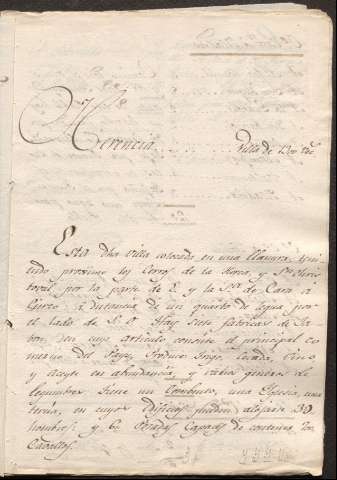 Herencia........ Villa de 1300 Vec.
Esta dha Villa colocada en una llanura, teni
endo proximo los Cerros de la Horca, y Sn. Cris
toval por la parte de E. y la Sra. de Casa a
distancia de un quarto de legua por
el lado de S.O. Hay siete fabricas de Ja
bon, en cuyo articulo consiste el principal co
mercio del Pays; Produce Trigo, Cevada, Vino,
y Aceyte en abundancia, y varios generos de
legumbres. tiene un Combento, una Yglesia, una
en cuyos edificios pueden alojarse
hombres; y 6 Posadas Capaces de contener 200
Cavallos.